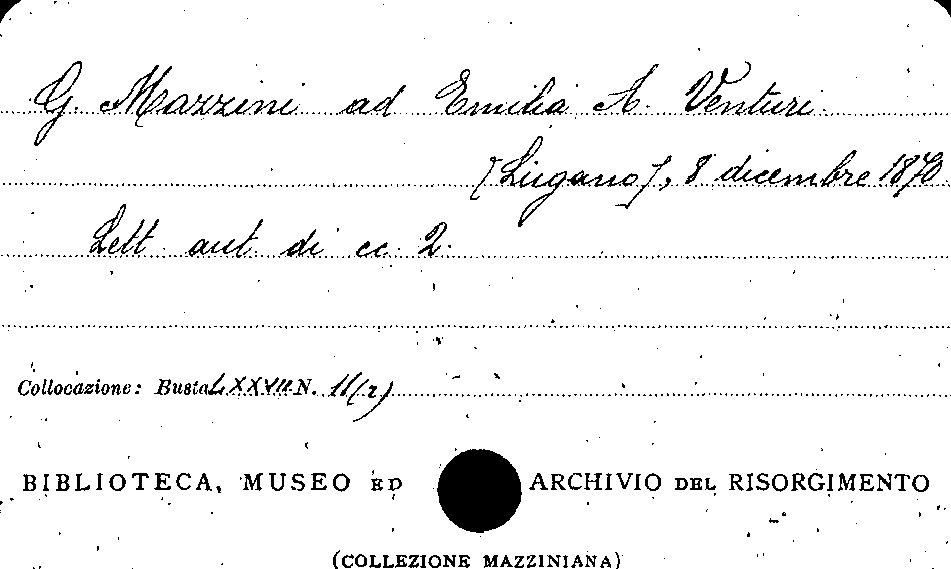 G. Mazzini ad Emilia A. Venturi
[Lugano], 8 dicembre 1870.
Lett. aut. di cc. 2.
Collocazione: Busta LXXVII N. 11(2)
BIBLIOTECA, MUSEO ED ARCHIVIO DEL RISORGIMENTO
(COLLEZIONE MAZZINIANA)